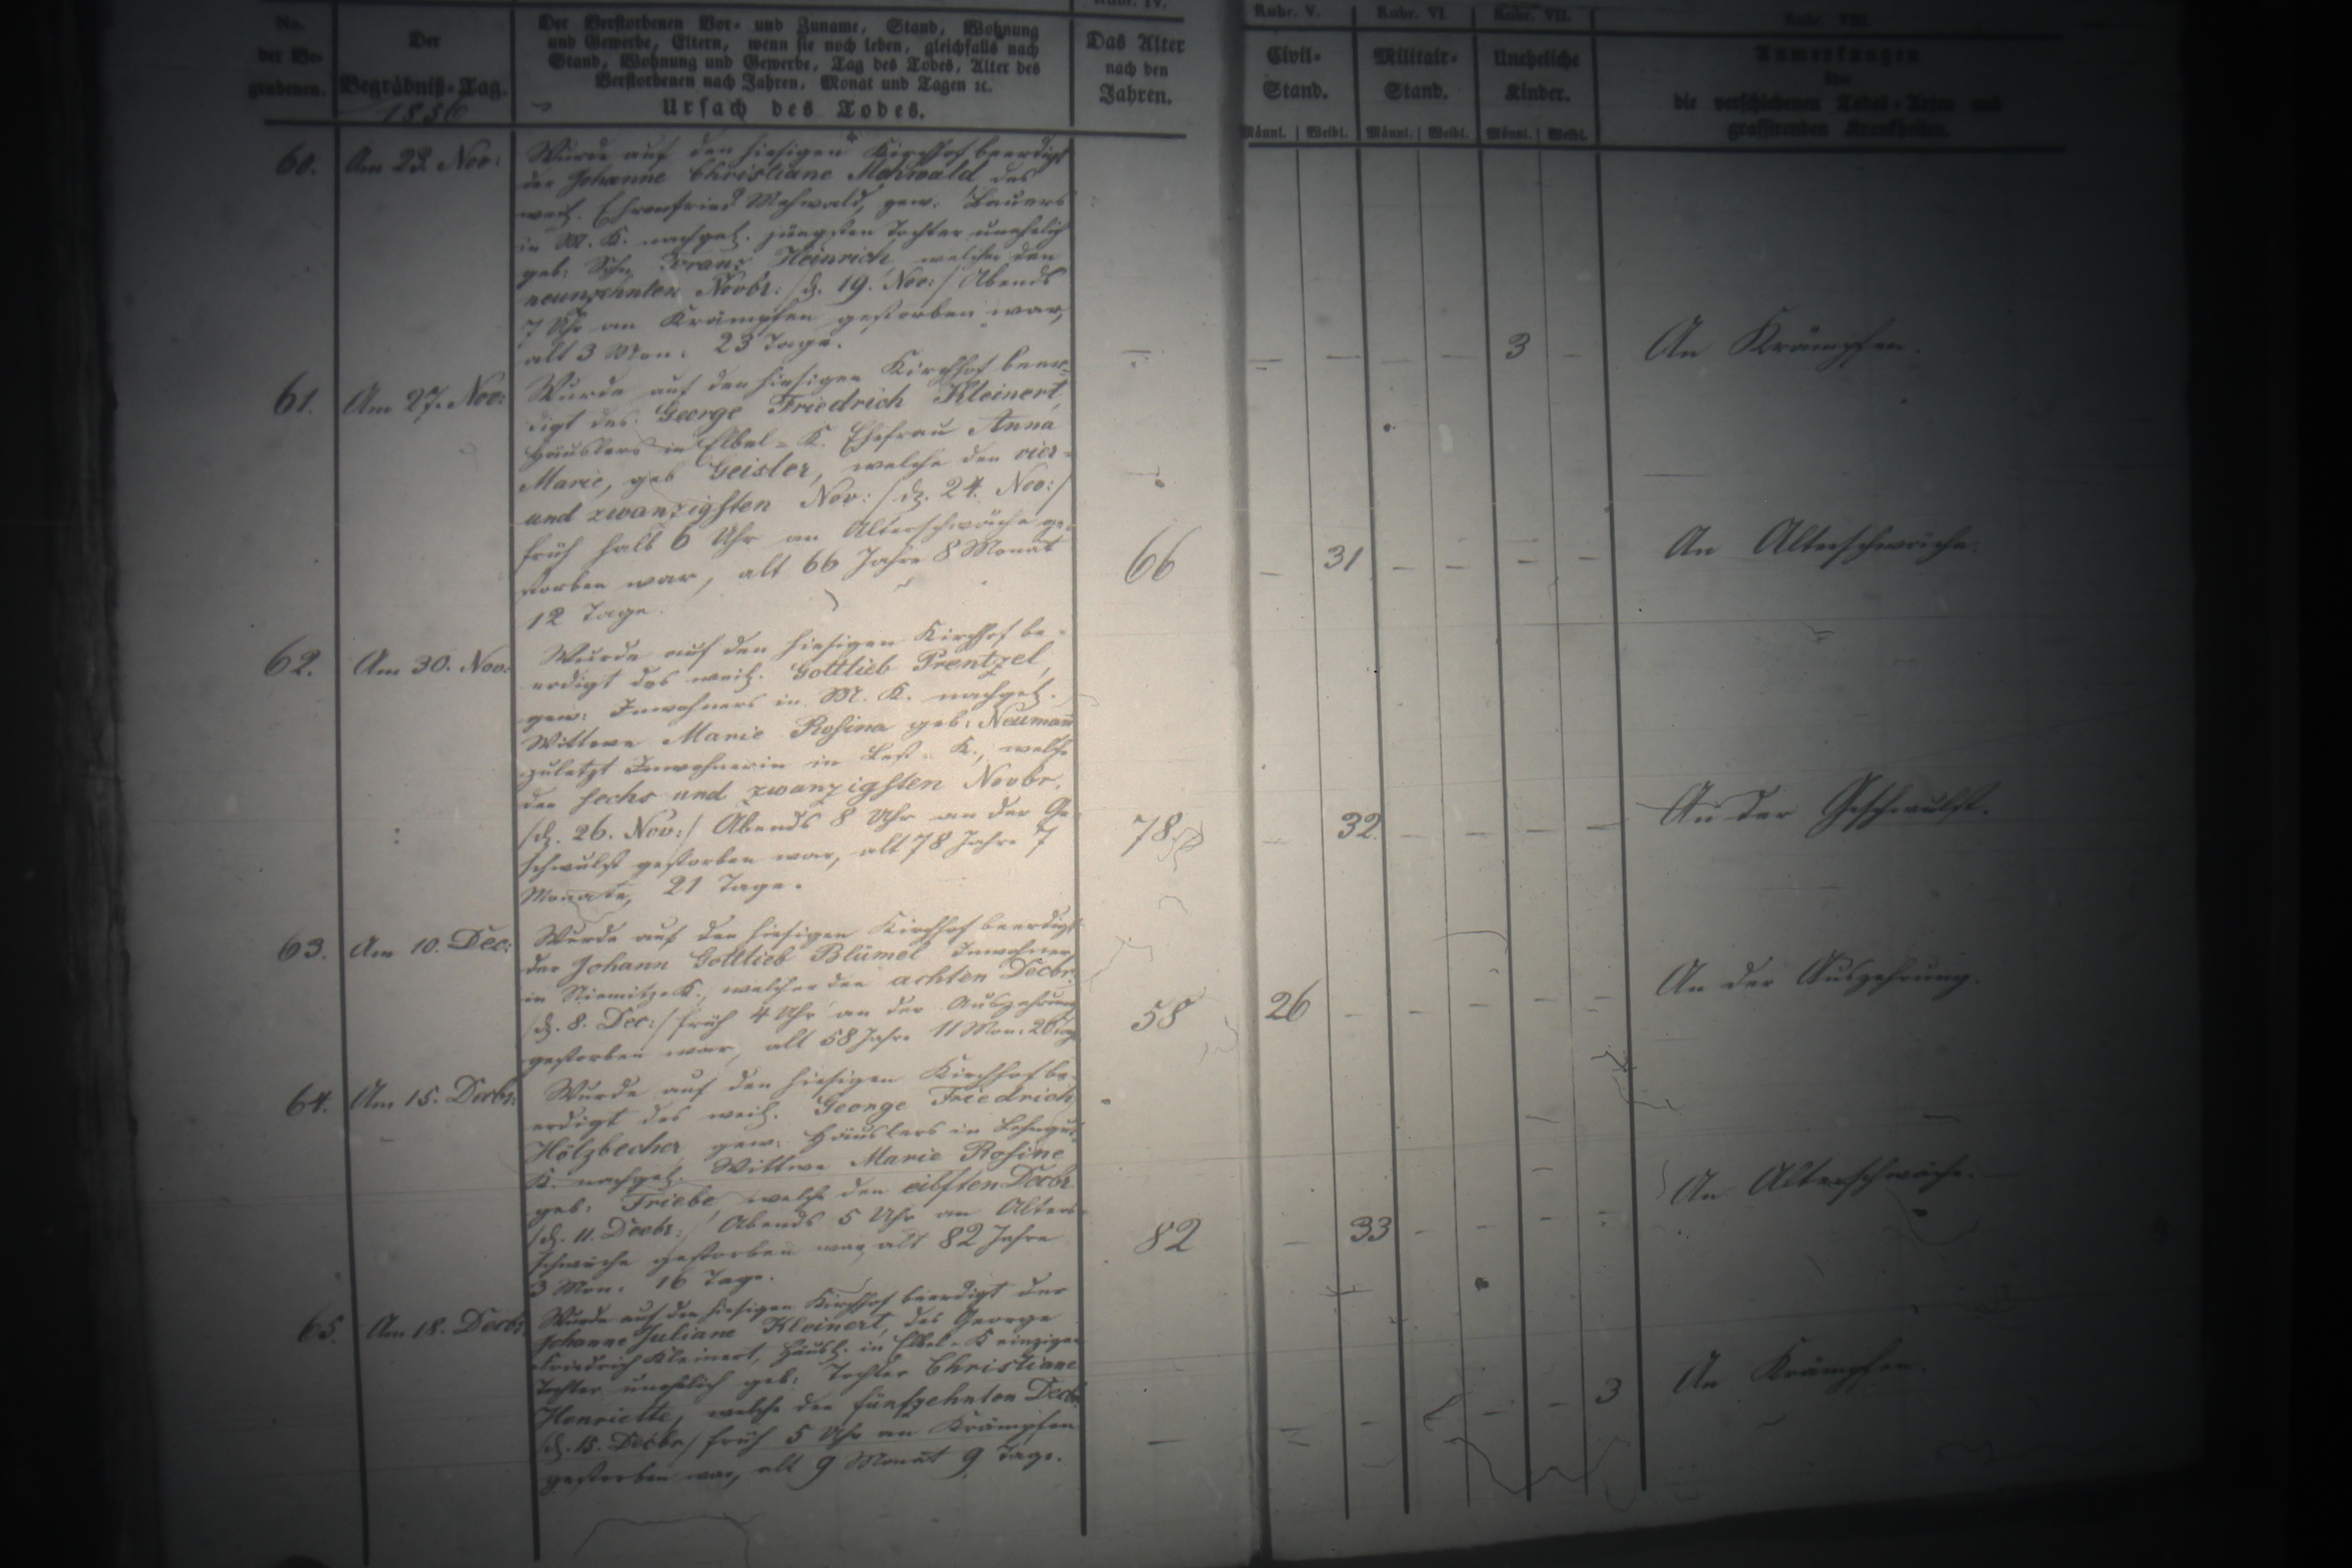 Rubr. IV.
Rubr. V. Rubr. VI. Rubr. VII. Rubr. VIII.
No. der Be- grabenen.
Der Begräbniß-Tag.
1856
Der Verstorbenen Vor- und Zuname, Stand, Wohnung
und Gewerbe, Eltern, wenn sie noch leben, gleichfalls nach
Stand, Wohnung und Gewerbe, Tag des Todes, Alter des
Verstorbenen nach Jahren, Monat und Tagen ꝛc.
Ursach des Todes.
Das Alter
nach den
Jahren.
Civil-
Stand.
Militair-
Stand.
Uneheliche
Kinder.
Anmerkungen
über
die verschiedenen Todes-Arten und
grassirenden Krankheiten.
Männl. Weibl. Männl. Weibl. Männl. Weibl.
60. Am 23. Nov:
Wurde auf den hiesigen Kirchhof beerdigt
der Johanne Christiane Mehwald des
weil. Ehrenfried Mehwald, gew. Bauers
in M. K. nachgel. jüngsten Tochter unehelich
geb: Sohn Franz Heinrich, welcher den
neunzehnten Novbr: /d. 19. Nov:/ Abends
7 Uhr an Krämpfen gestorben war,
alt 3 Mon: 23 Tage.
— — — — — 3 — An Krämpfen.
61. Am 27. Nov:
Wurde auf den hiesigen Kirchhof beer-
digt des George Friedrich Kleinert,
Häuslers in Elbel-K. Ehefrau Anna
Marie, geb Geisler, welche den vier-
und zwanzigsten Nov: /d. 24. Nov:/
früh halb 6 Uhr an Alterschwäche ge-
storben war, alt 66 Jahre 8 Monat
12 Tage.
66 — 31 — — — — An Alterschwäche.
62. Am 30. Nov:
Wurde auf den hiesigen Kirchhof be-
erdigt des weil. Gottlieb Prentzel,
gew: Inwohners in M. K. nachgel.
Wittwe Marie Rosina geb: Neumann
zuletzt Inwohnerin in K., welche
den sechs und zwanzigsten Novbr.
/d. 26. Nov:/ Abends 8 Uhr an der Ge-
schwulst gestorben war, alt 78 Jahre 7
Monate, 21 Tage.
78 — 32. — — — — An der Geschwulst.
63. Am 10. Dec:
Wurde auf den hiesigen Kirchhof beerdigt
der Johann Gottlieb Blümel Inwohner
in Niemitz-K., welcher den achten Decbr.
/d. 8. Dec:/ früh 4 Uhr an der Auszehrung
gestorben war, alt 58 Jahre 11 Mon: 20 Tage
58 26 — — — — — An der Auszehrung.
64. Am 15. Decbr:
Wurde auf den hiesigen Kirchhof be-
erdigt des weil. George Friedrich
Hölzbecher gew: Häuslers in Lehngut-
K. nachgel. Wittwe Marie Rosine
geb: Friebe, welche den eilften Decbr
/d. 11. Decbr:/ Abends 5 Uhr an Alters-
schwäche gestorben war, alt 82 Jahre
3 Mon: 16 Tage.
82 — 33 — — — — An Alterschwäche.
65. Am 18. Decbr:
Wurde auf den hiesigen Kirchhof beerdigt der
Johanne Juliane Kleinert, des George
Friedrich Kleinert, Häusl: in Elbel-K einzigen
Tochter unehelich geb: Tochter Christiane
Henriette, welche den fünfzehnten Decbr.
/d. 15. Decbr/ früh 5 Uhr an Krämpfen
gestorben war, alt 9 Monat 9 Tage.
— — — — — 3 An Krämpfen.